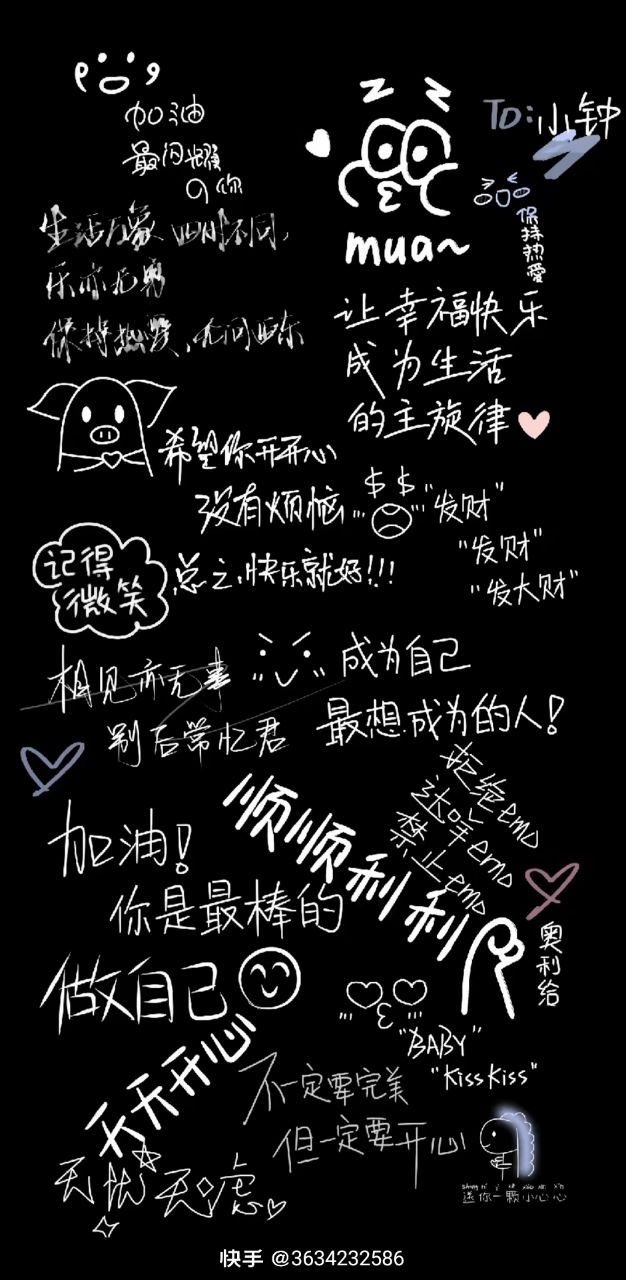 加油
最闪耀
的你
TO:小钟
保持热爱
mua~
生活万象 四时不同,
乐亦无穷
保持热爱,无问西东
让幸福快乐
成为生活
的主旋律
希望你开开心
没有烦恼...
$ $
"发财"
"发财"
"发大财"
记得
微笑
总之,快乐就好!!!
相见亦无事
别后常忆君
成为自己
最想成为的人!
拒绝emo
达咩emo
禁止emo
加油!
你是最棒的
顺顺利利
奥利给
做自己
"BABY"
"KissKiss"
天天开心
不一定要完美
但一定要开心
无忧无虑
送你一颗小心心
快手 @3634232586